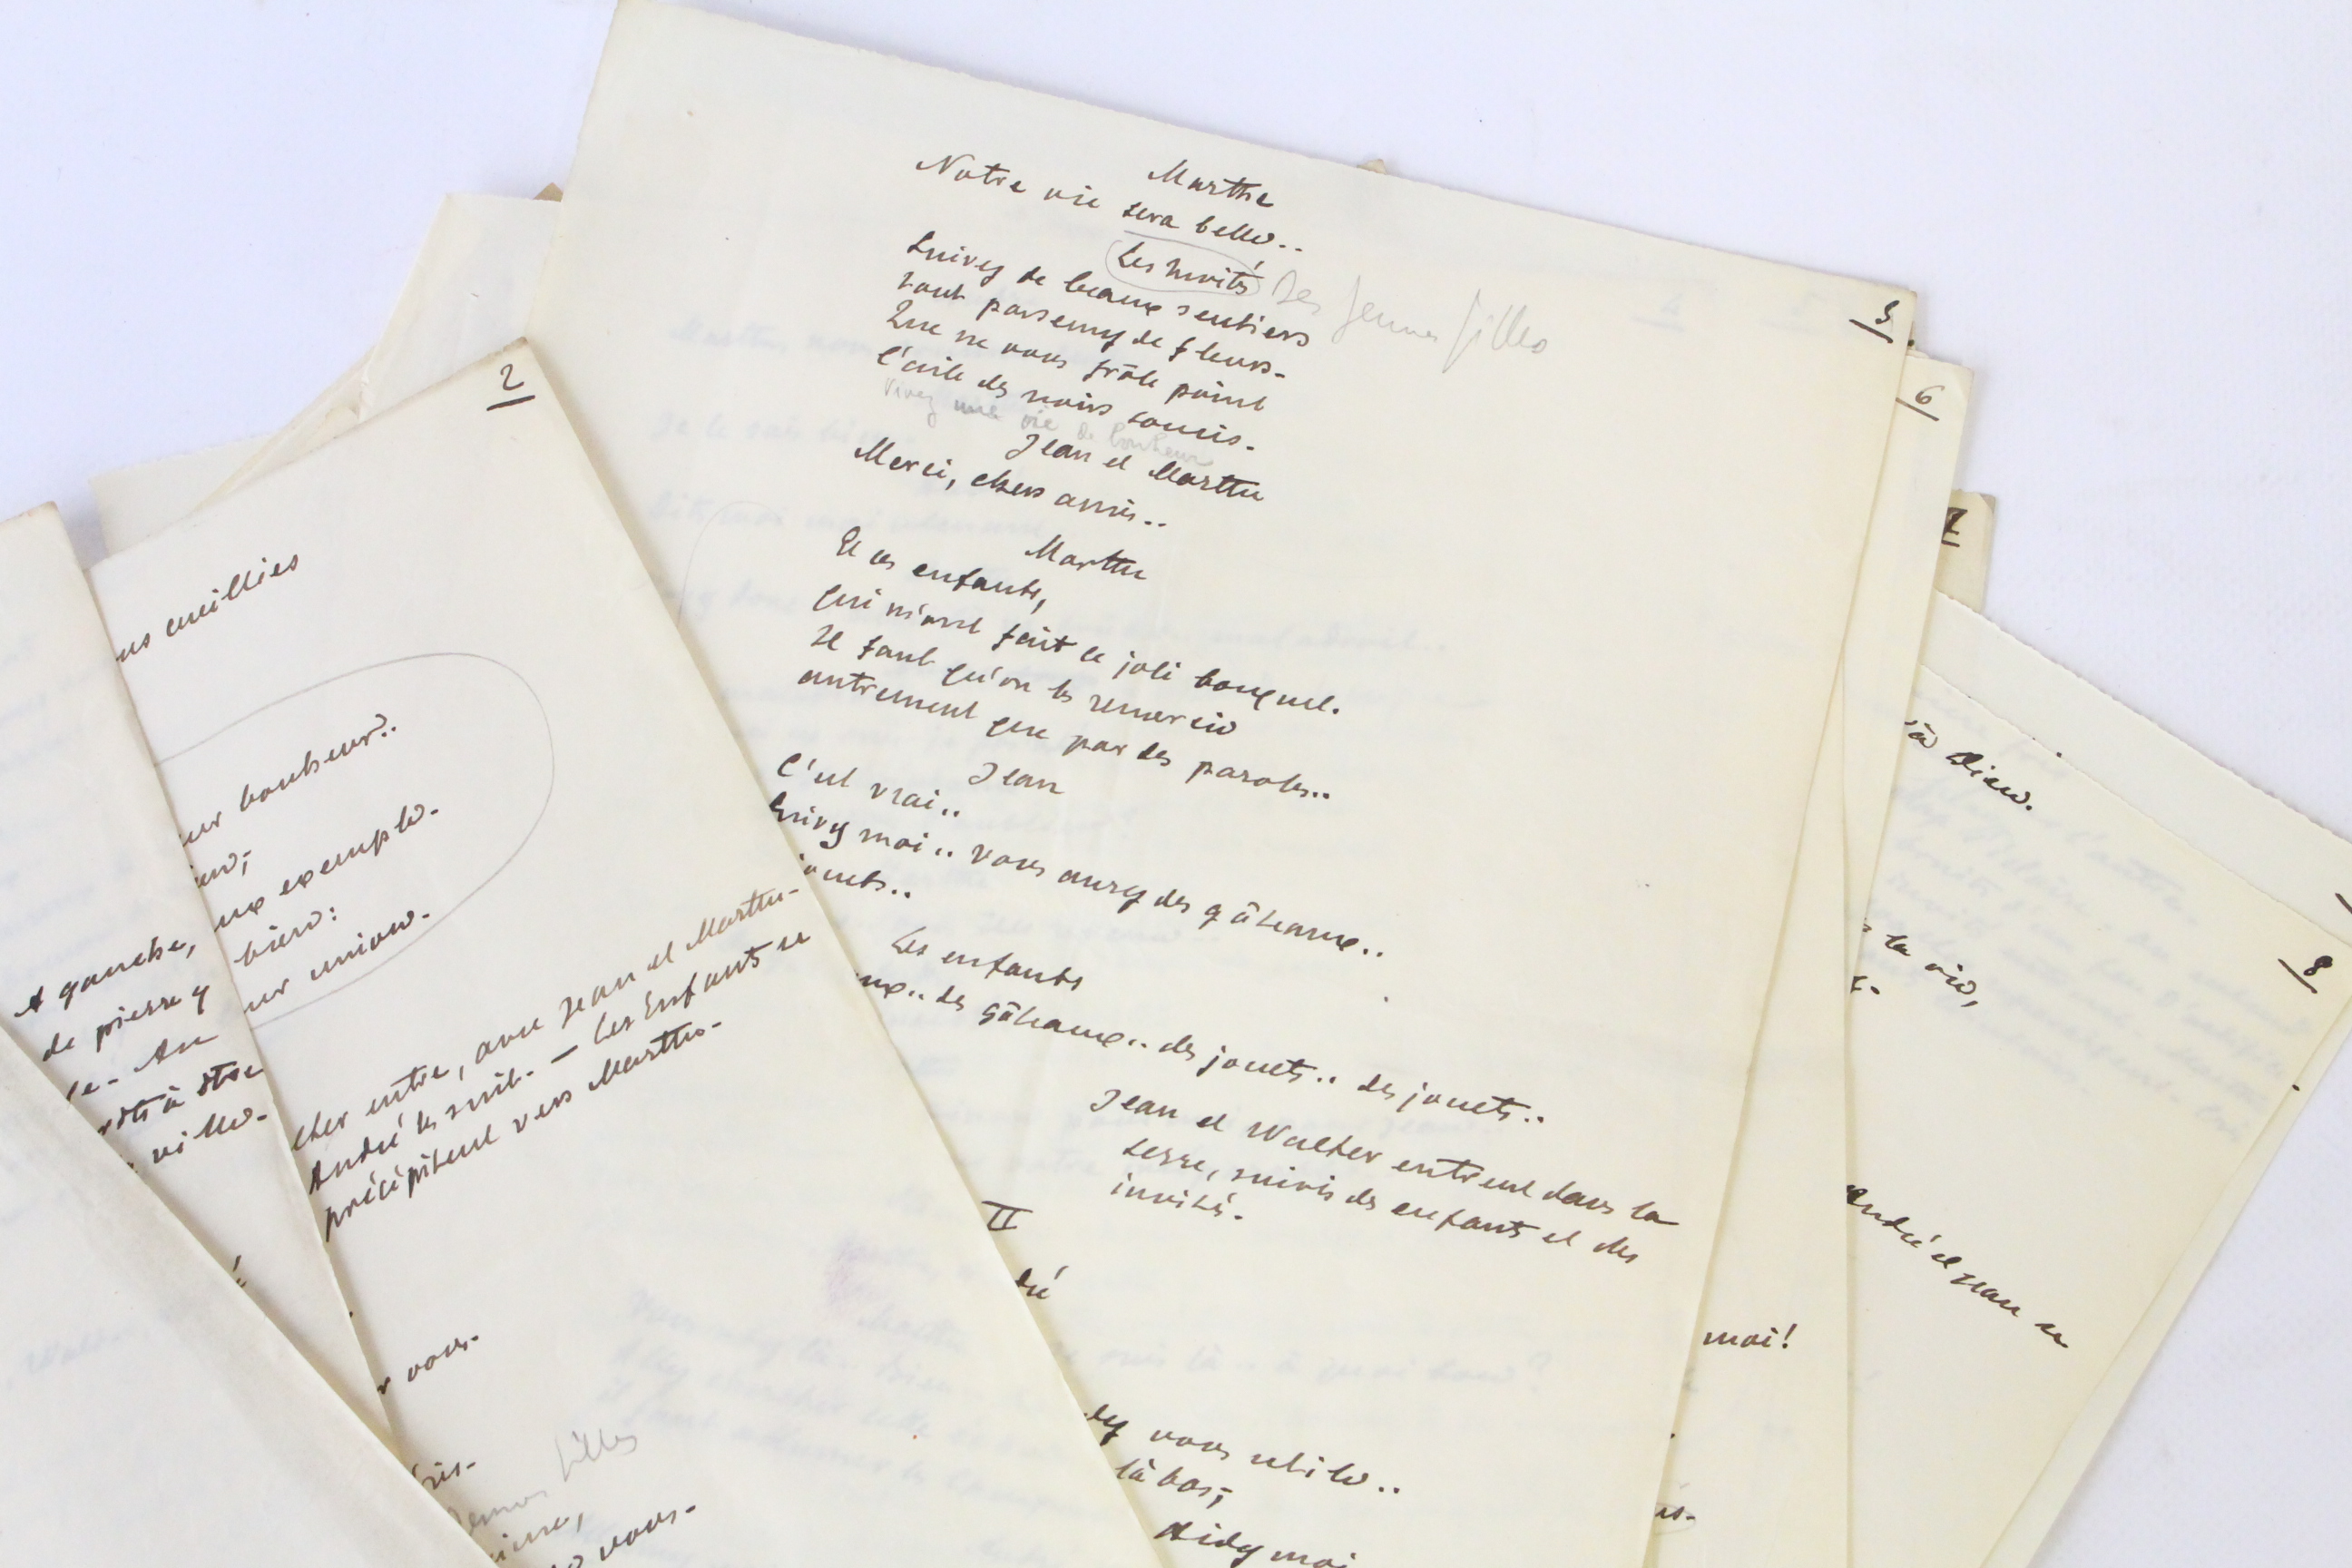 Marthe
Notre vie sera belle..
Les Invités Les jeunes filles
Suivez de beaux sentiers
tout parsemez de fleurs-
Que ne vous frôle point
l'aile des noirs soucis-
Vivez une vie de bonheur
Jean et Marthe
Merci, chers amis..
Marthe
Et ces enfants,
qui m'ont fait ce joli bouquet.
Il faut qu'on les remercie
autrement que par des paroles..
Jean
C'est vrai..
Suivez moi.. vous aurez des gâteaux..
Les enfants
des gâteaux.. des jouets.. des jouets..
Jean et Walther entrent dans la
serre, suivis des enfants et des
invités-
II
vous utile..
là bas;
Aidez moi
5
2
cuillies
bonheur..
exemple-
bien:
union-
entre, avec Jean et Marthe-
André les suit. — Les Enfants se
précipitent vers Marthe-
vous-
filles
vous-
A gauche,
de pierre
à être
ville-
6
7
moi!
8
à Dieu.
la vie,
André et Jean se